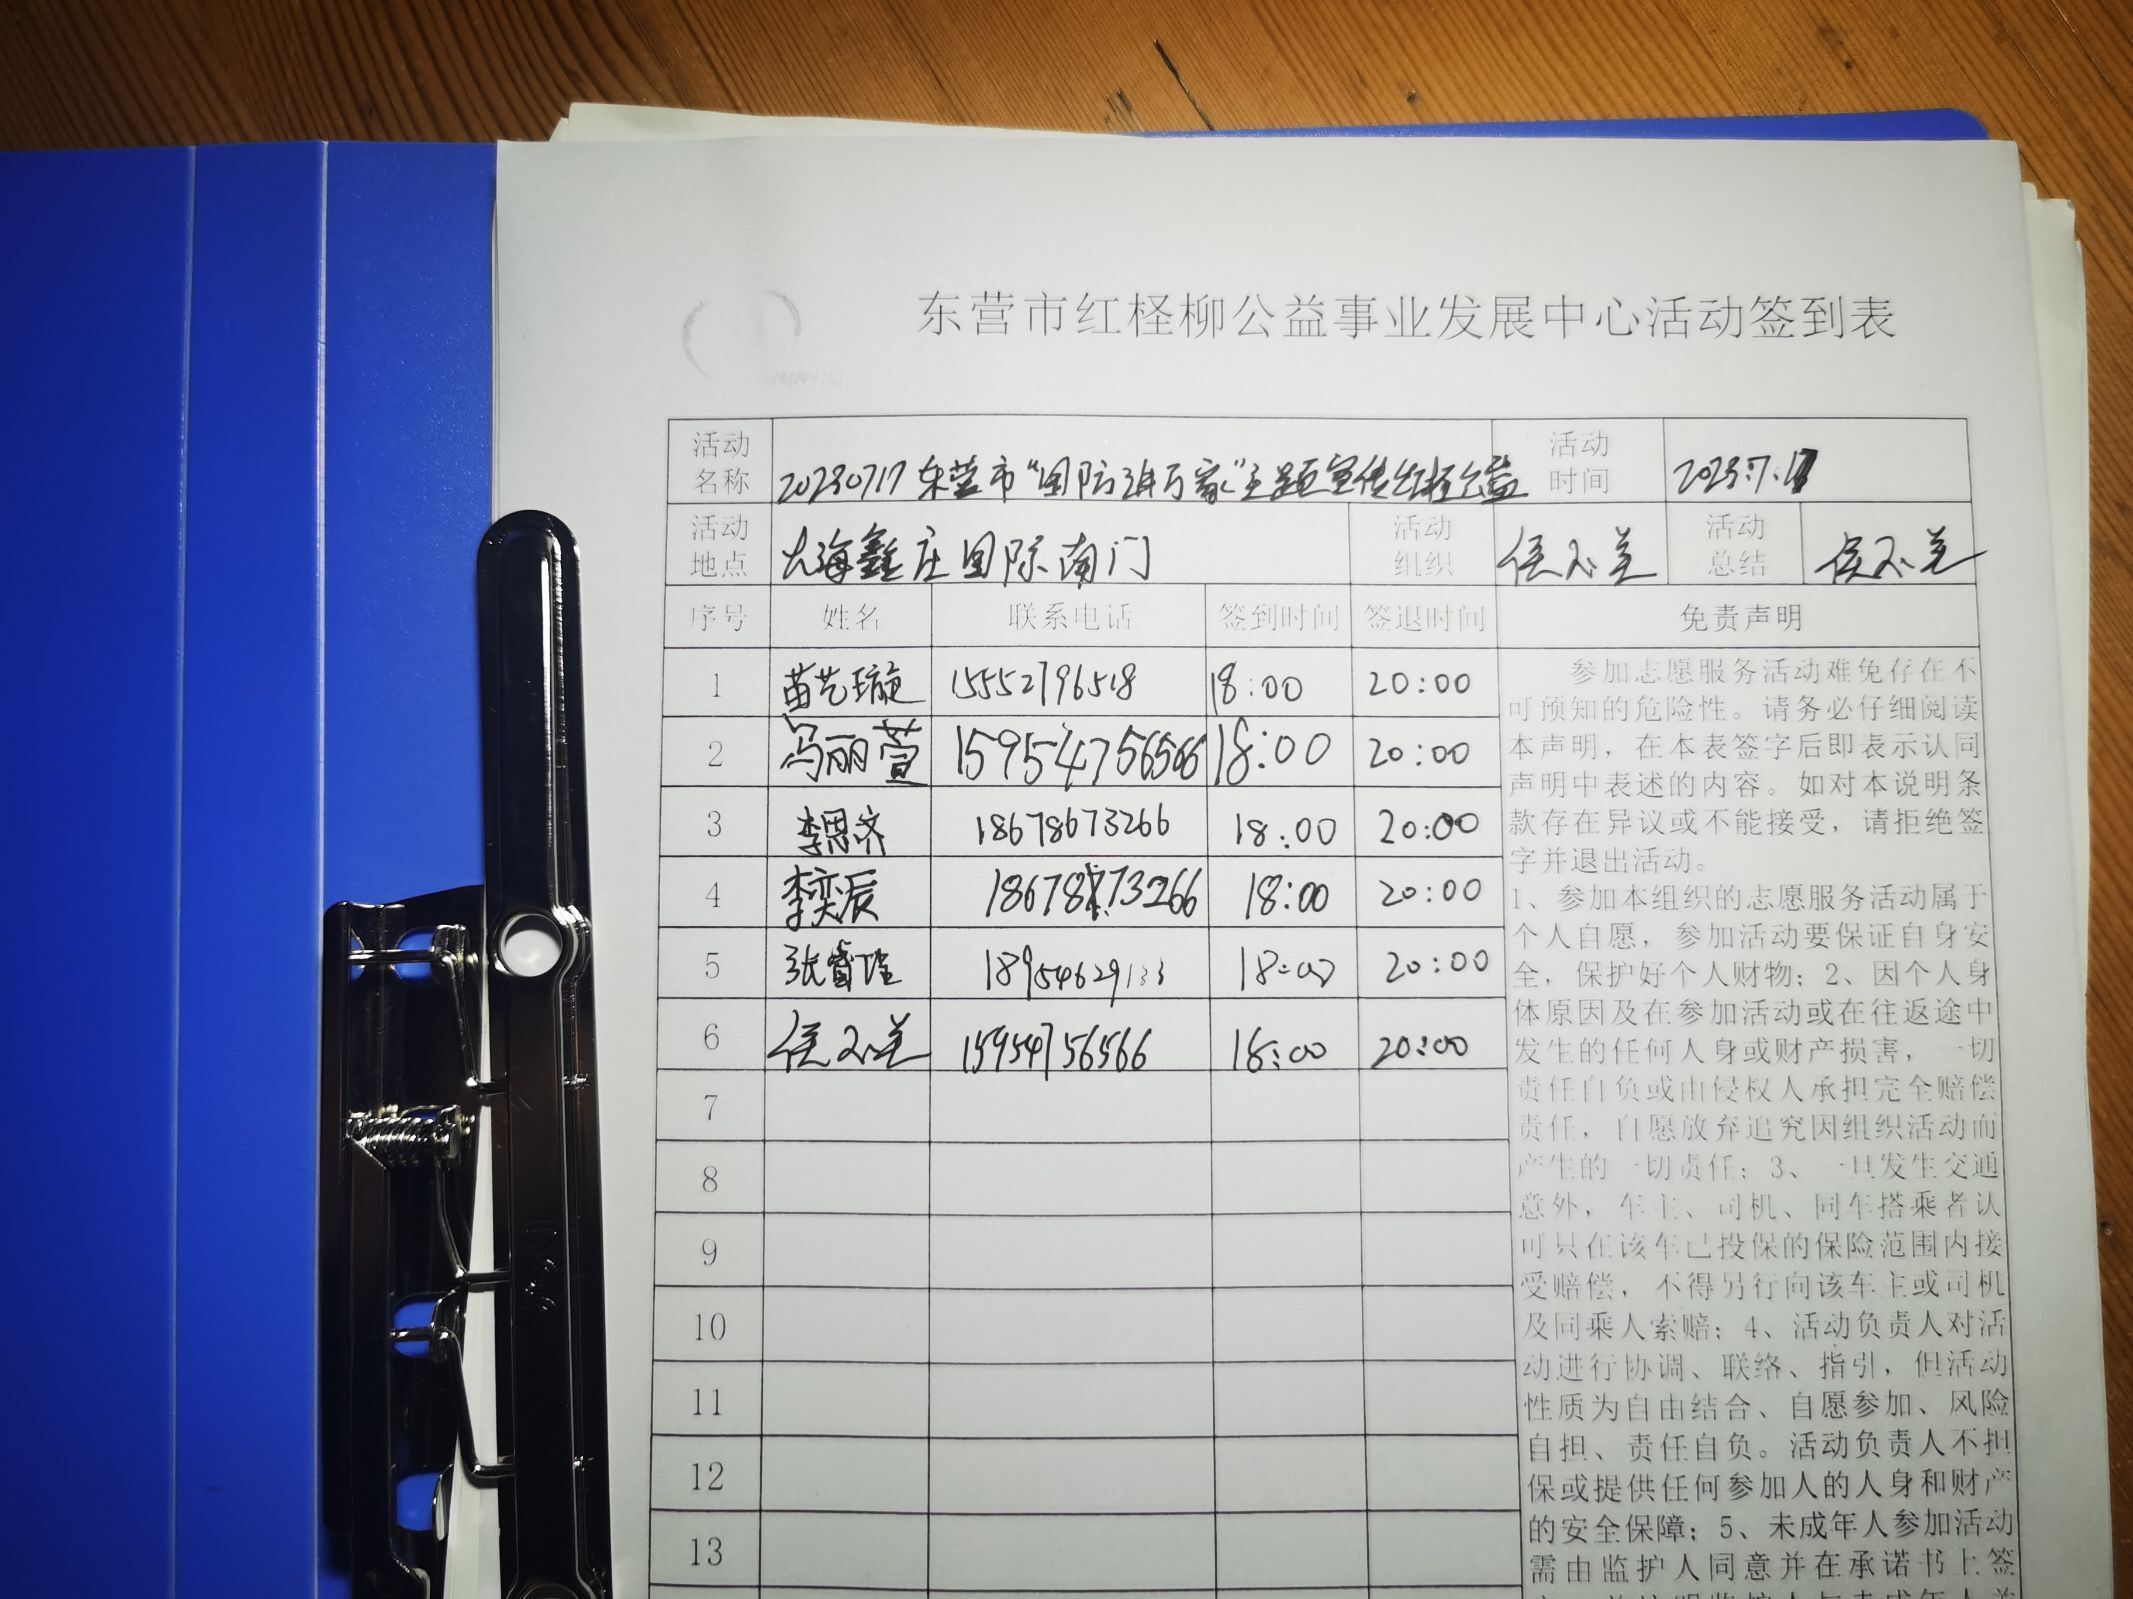 东营市红柽柳公益事业发展中心活动签到表
活动名称 20230717东营市“国防进万家”主题宣传红柽公益 活动时间 2023.7.17
活动地点 大海鑫庄国际南门 活动组织 活动总结
序号 姓名 联系电话 签到时间 签退时间 免责声明
1 苗艺璇 15552796518 18:00 20:00
2 冯丽萱 15954756566 18:00 20:00
3 李思齐 18678673266 18:00 20:00
4 李奕辰 18678673266 18:00 20:00
5 张睿 18954629133 18:00 20:00
6 15954756566 18:00 20:00
7
8
9
10
11
12
13
参加志愿服务活动难免存在不
可预知的危险性。请务必仔细阅读
本声明，在本表签字后即表示认同
声明中表述的内容。如对本说明条
款存在异议或不能接受，请拒绝签
字并退出活动。
1、参加本组织的志愿服务活动属于
个人自愿，参加活动要保证自身安
全，保护好个人财物；2、因个人身
体原因及在参加活动或在往返途中
发生的任何人身或财产损害，一切
责任自负或由侵权人承担完全赔偿
责任，自愿放弃追究因组织活动而
产生的一切责任；3、一旦发生交通
意外，车主、司机、同车搭乘者认
可只在该车已投保的保险范围内接
受赔偿，不得另行向该车主或司机
及同乘人索赔；4、活动负责人对活
动进行协调、联络、指引，但活动
性质为自由结合、自愿参加、风险
自担、责任自负。活动负责人不担
保或提供任何参加人的人身和财产
的安全保障；5、未成年人参加活动
需由监护人同意并在承诺书上签